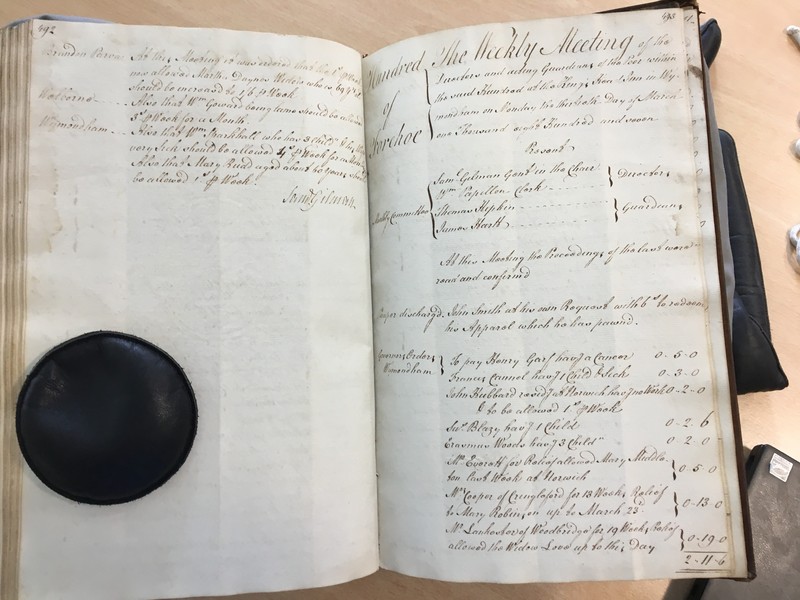 492
Brandon Parva At this Meeting it was ordered that the 1s ⅌ Week
now allowed Martha Daynes Widow who is 64
should be increased to 1/6 ⅌ Week
Also that Wm Goward being lame should be allowed
3s ⅌ Week for a Month
Wymondham Also that Wm Markhall who has 3 Childn & they
very sick should be allowed 4s ⅌ Week for a Month
Also that Mary Rudd aged about 60 years should
be allowed 1s ⅌ Week.
Saml Gilman
493
Hundred
of
Forehoe
The Weekly Meeting of the
Directors and acting Guardians of the Poor within
the said Hundred at the King's Head Inn in Wy-
mondham on Monday the 16th Day of March
one Thousand eight Hundred and seven
Present
Saml Gilman Gent in the Chair
Wm Papillon Clerk
Directors
Weekly Committee
Thomas Hipkin
James Harth
Guardians
At this Meeting the Proceedings of the last were
read and confirmed
Pauper discharg'd. John Smith at his own Request with 6s to redeem
his Apparel which he has pawnd.
Governors Orders
Wymondham
To pay Henry Garf havg a Cancer 0-5-0
Frances Cannol havg 1 Child Sick 0-3-0
John Hubbard residg at Norwich havg no Work 0-2-0
& to be allowed 1s ⅌ Week
Blazy havg 1 Child 0-2-6
Erasmus Woods havg 3 Childn 0-2-0
Mr Everett for Relief allowed Mary Middle-
ton last Week at Norwich 0-5-0
Mr Cooper of Cringleford for 13 Weeks Relief
to Mary Robinson up to March 23d 0-13-0
Mr Lankester of Woodbridge for 19 Weeks Relief
allowed the Widow Love up to this Day 0-19-0
2-11-6